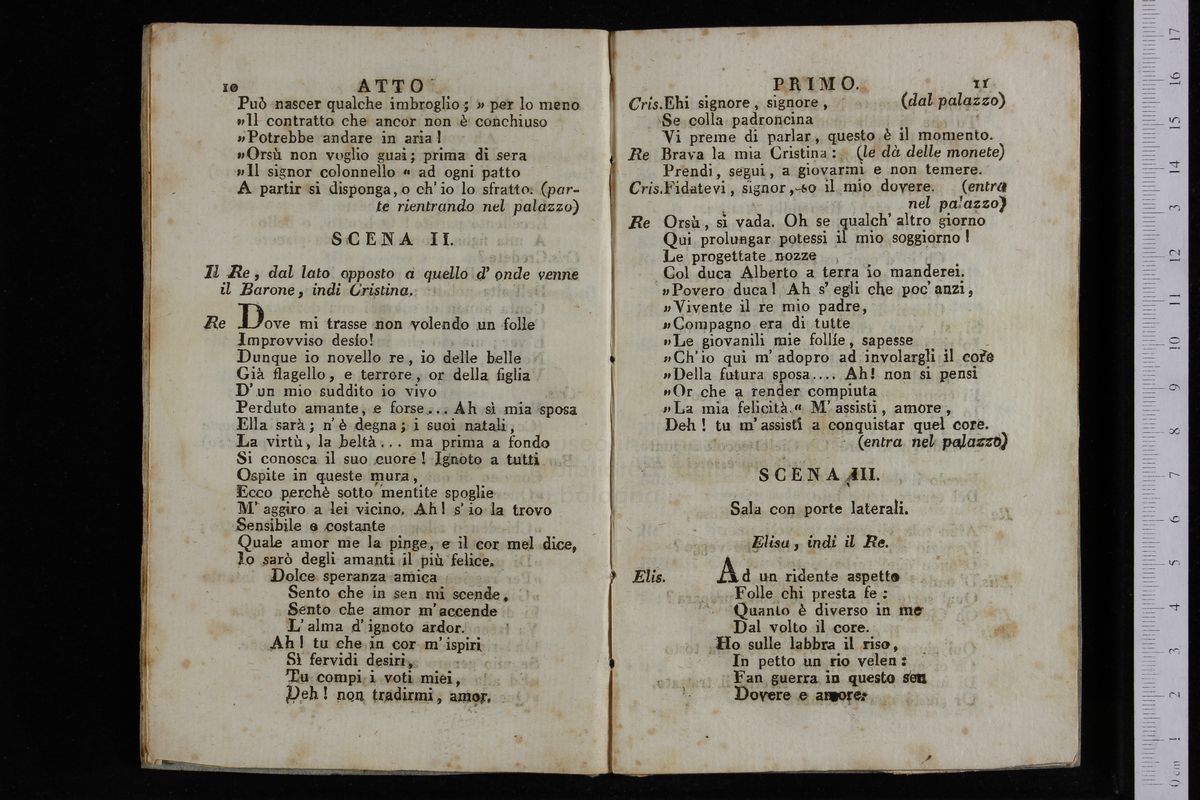 10 ATTO
Può nascer qualche imbroglio ; » per lo meno
»Il contratto che ancor non è conchiuso
»Potrebbe andare in aria !
»Orsù non voglio guai ; prima di sera
»Il signor colonnello « ad ogni patto
A partir si disponga, o ch' io lo sfratto. (par-
te rientrando nel palazzo)
SCENA II.
Il Re, dal lato opposto a quello d' onde venne
il Barone, indi Cristina.
Re Dove mi trasse non volendo un folle
Improvviso desìo!
Dunque io novello re, io delle belle
Già flagello, e terrore, or della figlia
D' un mio suddito io vivo
Perduto amante, e forse... Ah sì mia sposa
Ella sarà ; n' è degna ; i suoi natali,
La virtù, la beltà... ma prima a fondo
Si conosca il suo cuore ! Ignoto a tutti
Ospite in queste mura,
Ecco perchè sotto mentite spoglie
M' aggiro a lei vicino. Ah! s' io la trovo
Sensibile e costante
Quale amor me la pinge, e il cor mel dice,
Io sarò degli amanti il più felice.
Dolce speranza amica
Sento che in sen mi scende.
Sento che amor m' accende
L' alma d' ignoto ardor.
Ah! tu che in cor m' ispiri
Sì fervidi desiri,
Tu compi i voti miei,
Deh ! non tradirmi, amor.
PRIMO. 11
Cris. Ehi signore, signore, (dal palazzo)
Se colla padroncina
Vi preme di parlar, questo è il momento.
Re Brava la mia Cristina : (le dà delle monete)
Prendi, segui, a giovarmi e non temere.
Cris. Fidatevi, signor, so il mio dovere. (entra
nel palazzo)
Re Orsù, si vada. Oh se qualch' altro giorno
Qui prolungar potessi il mio soggiorno !
Le progettate nozze
Col duca Alberto a terra io manderei.
»Povero duca! Ah s' egli che poc' anzi,
»Vivente il re mio padre,
»Compagno era di tutte
»Le giovanili mie follíe, sapesse
»Ch' io qui m' adopro ad involargli il core
»Della futura sposa.... Ah! non si pensi
»Or che a render compiuta
»La mia felicità.« M' assisti, amore,
Deh ! tu m' assisti a conquistar quel core.
(entra nel palazzo)
SCENA III.
Sala con porte laterali.
Elisa, indi il Re.
Elis. Ad un ridente aspetto
Folle chi presta fe :
Quanto è diverso in me
Dal volto il core.
Ho sulle labbra il riso,
In petto un rio velen :
Fan guerra in questo sen
Dovere e amore.
0 cm 1 2 3 4 5 6 7 8 9 10 11 12 13 14 15 16 17